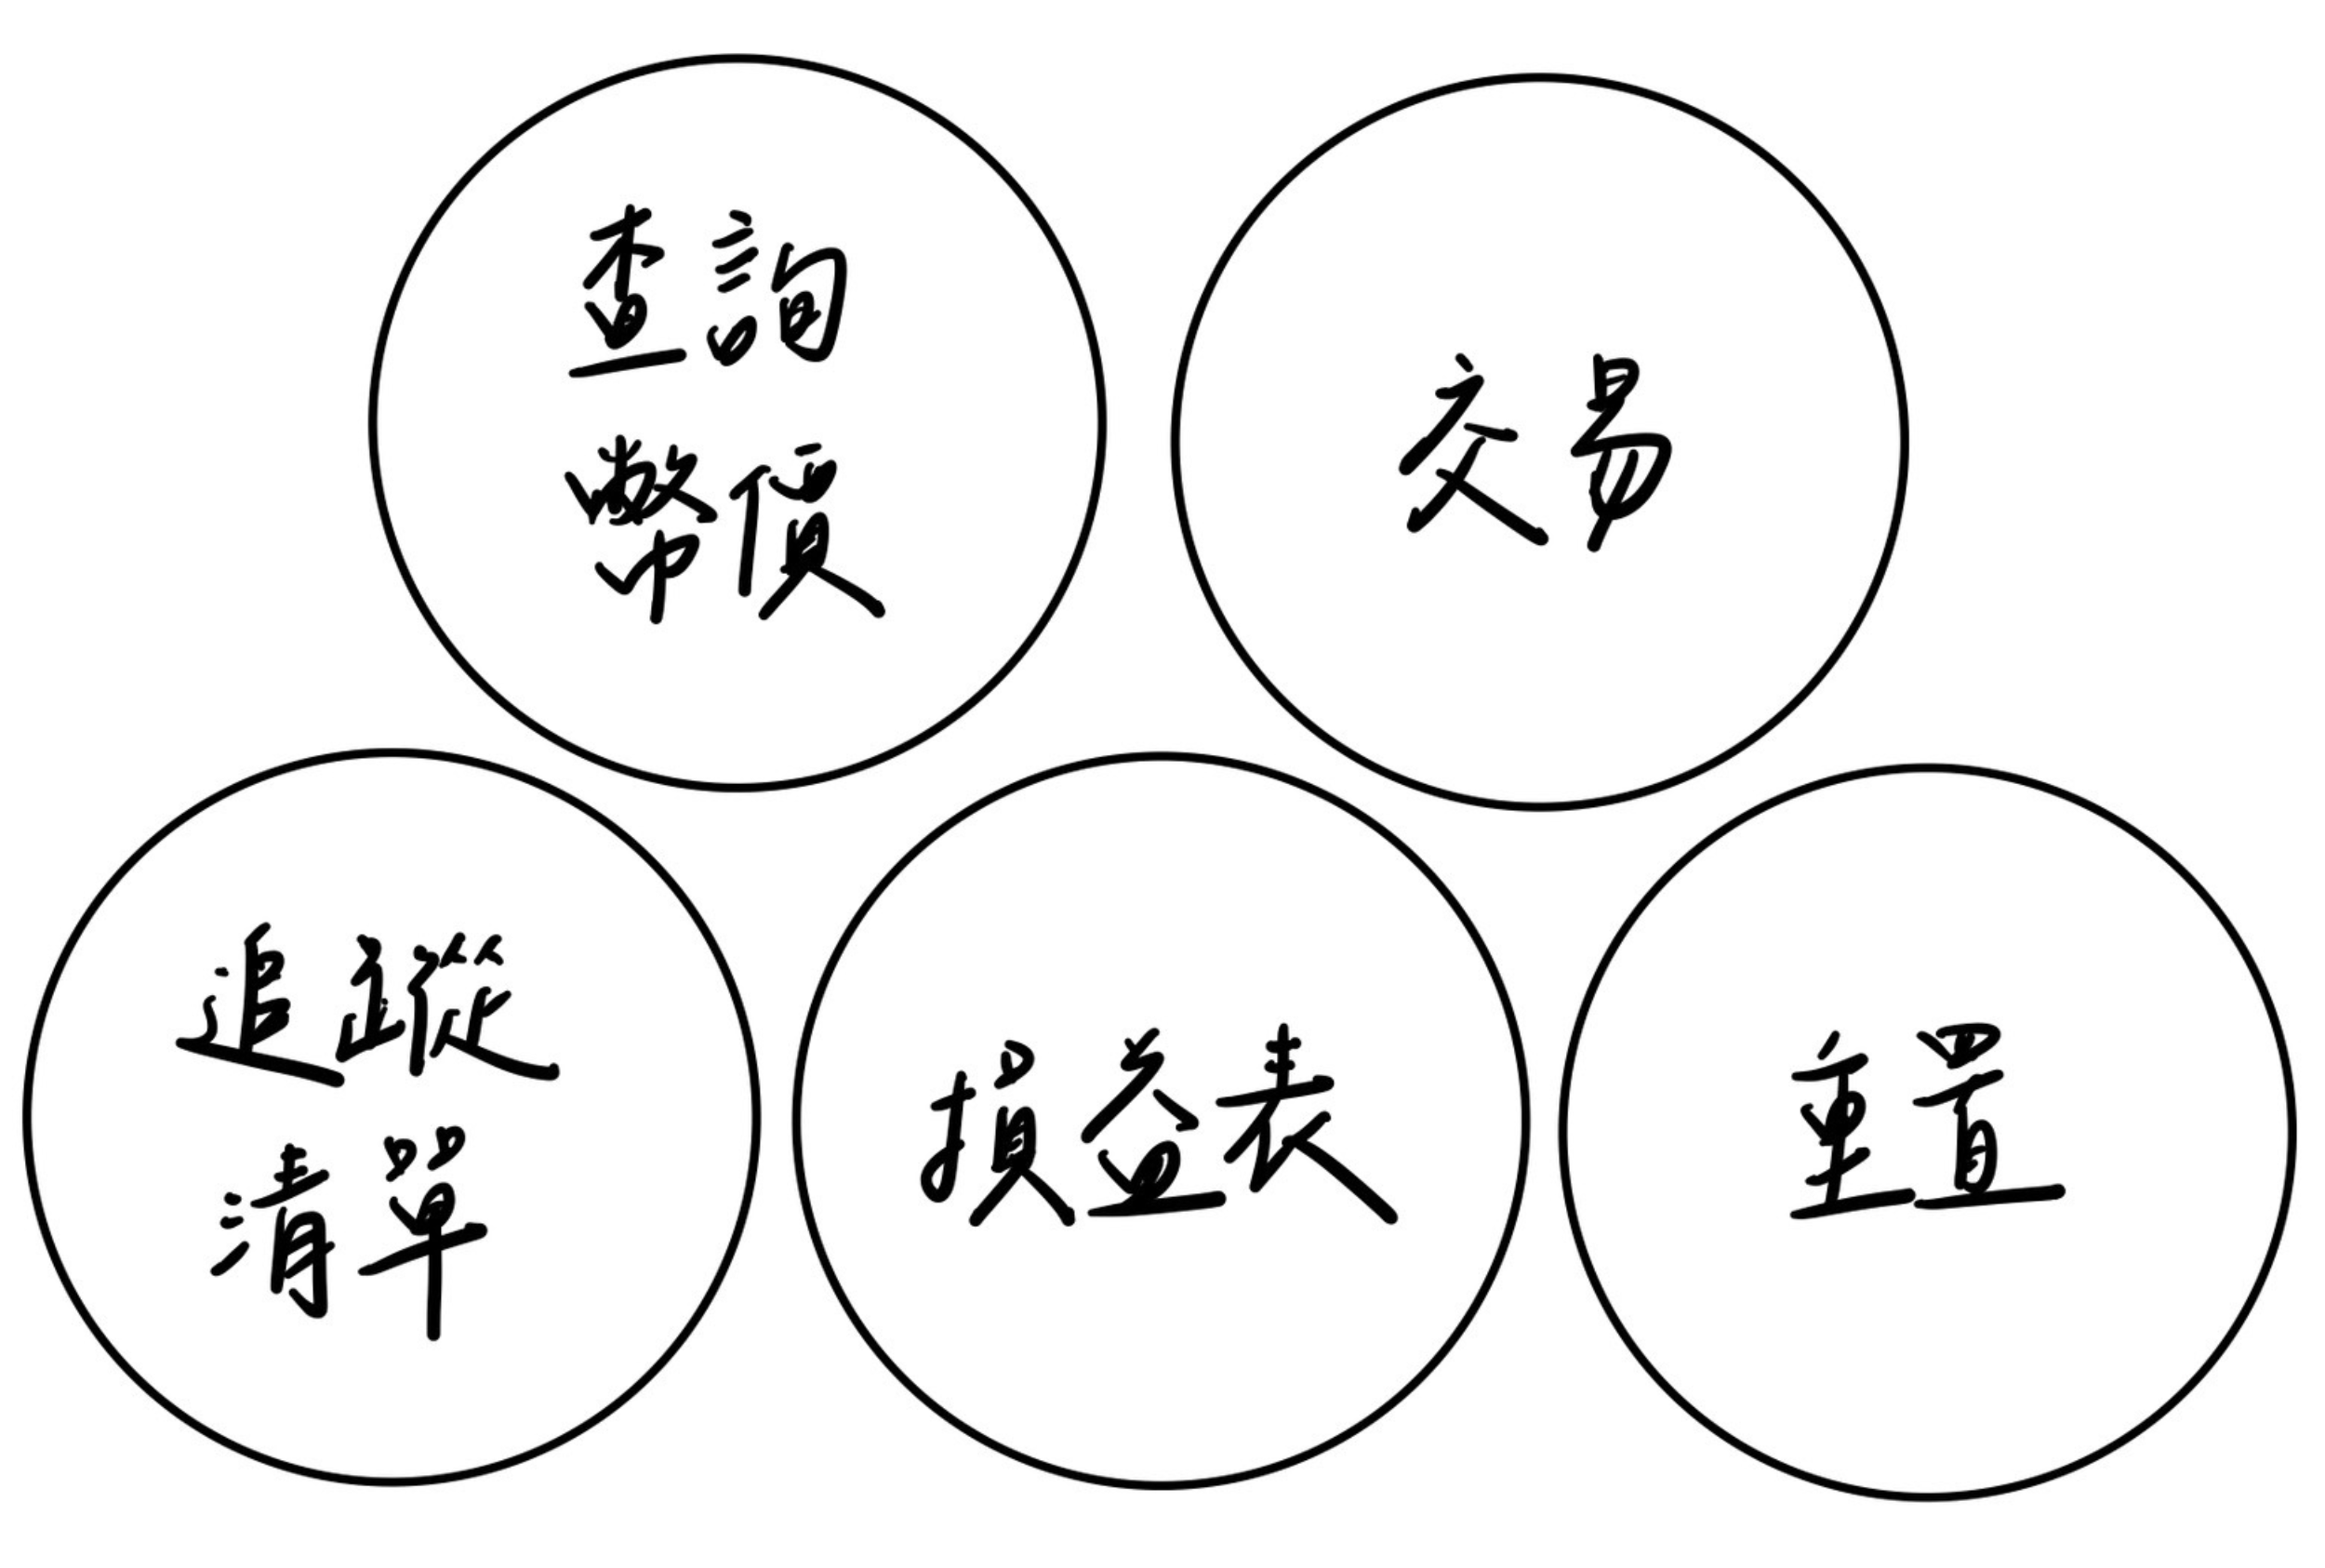 查詢
幣價
交易
追蹤
清單
損益表
重置